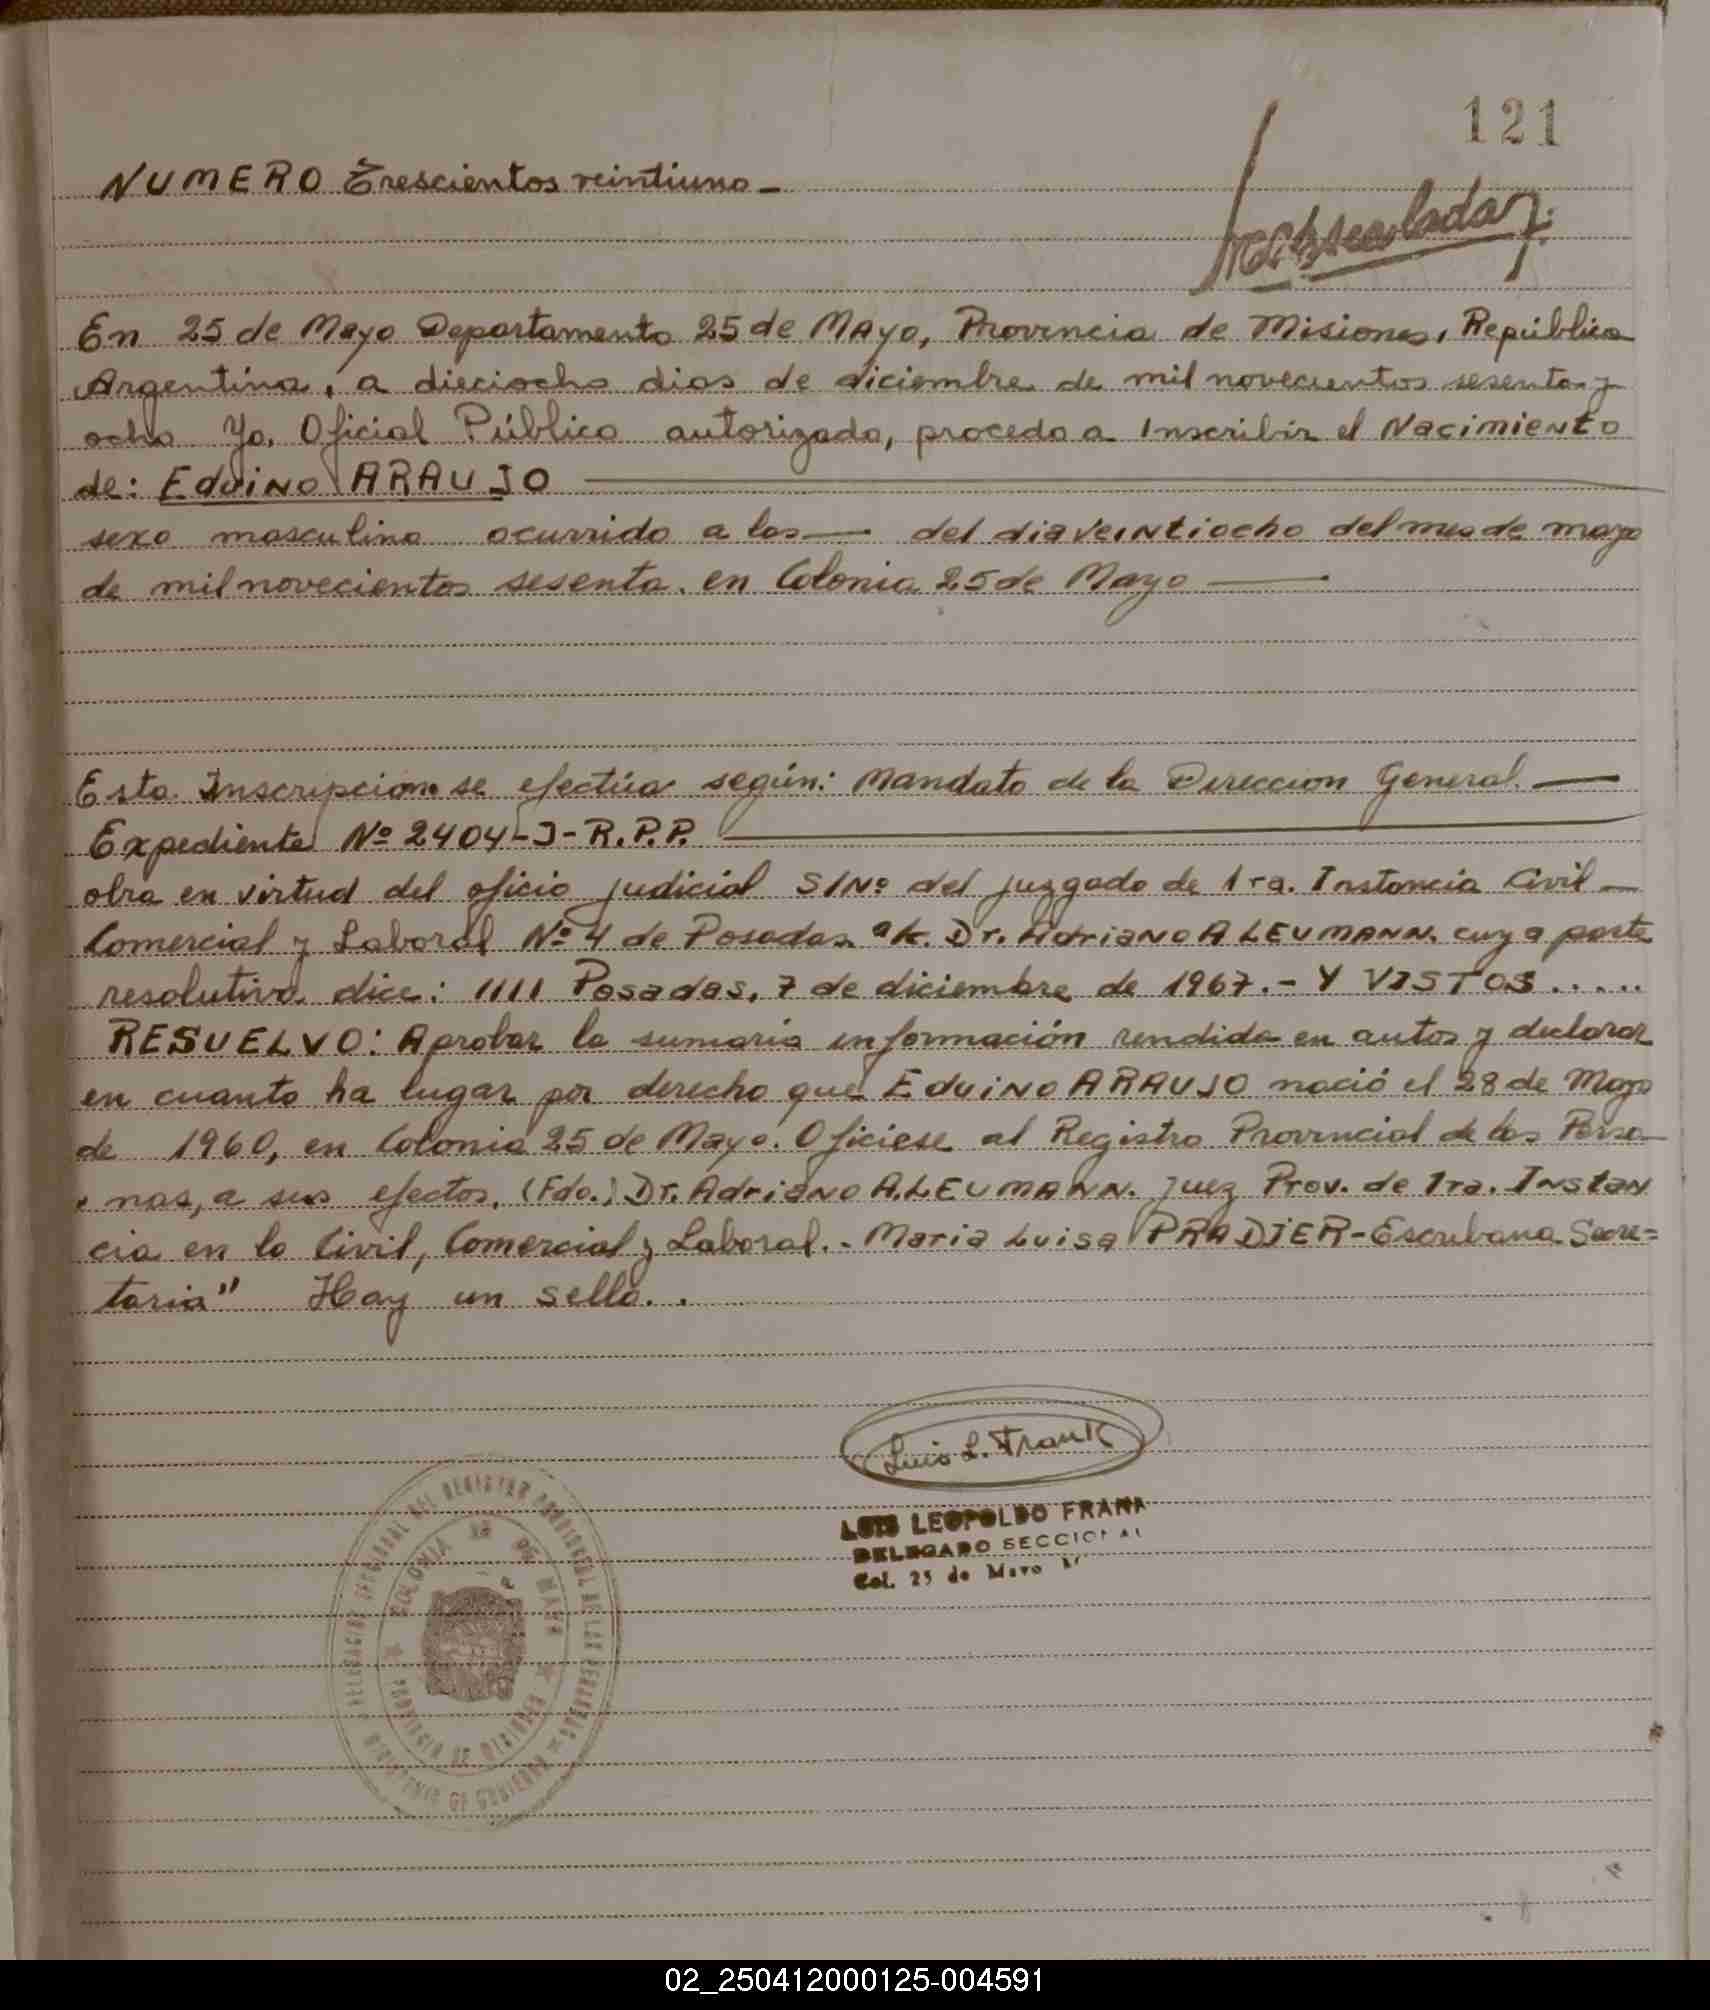 121
NUMERO Trescientos veintiuno_
En 25 de Mayo Departamento 25 de MAyo, Provincia de Misiones, República
Argentina, a dieciocho dias de diciembre de mil novecientos sesenta y
ocho Yo, Oficial Público autorizado, procedo a Inscribir el Nacimiento
de: Eduino ARAUJO
sexo masculino ocurrido a las — del dia veintiocho del mes de mayo
de mil novecientos sesenta. en Colonia 25 de Mayo —
Esta Inscripcion se efectúa según: Mandato de la Direccion General. —
Expediente Nº 2404-J-R.P.P.
obra en virtud del oficio judicial S/Nº del juzgado de 1ra. Instancia Civil —
Comercial y Laboral Nº 4 de Posadas Dr. Adriano A LEUMANN. cuya parte
resolutiva dice: //// Posadas, 7 de diciembre de 1967.- Y VISTOS .....
RESUELVO: Aprobar la sumaria información rendida en autos y declarar
en cuanto ha lugar por derecho que Eduino ARAUJO nació el 28 de Mayo
de 1960, en Colonia 25 de Mayo. Oficiese al Registro Provincial de las Perso
nas, a sus efectos. (Fdo.) Dr. Adriano A. LEUMANN. juez Prov. de 1ra. Instan
cia en lo Civil, Comercial y Laboral.- Maria Luisa PRADIER-Escribana Secre=
taria" Hay un sello..
Luis L. Frank
LUIS LEOPOLDO FRANK
DELEGADO SECCIONAL
Col. 25 de Mayo
DELEGACION SECCIONAL DEL REGISTRO PROVINCIAL DE LAS PERSONAS
MINISTERIO DE GOBIERNO
COLONIA 25 DE MAYO
PROVINCIA DE MISIONES
02_250412000125-004591